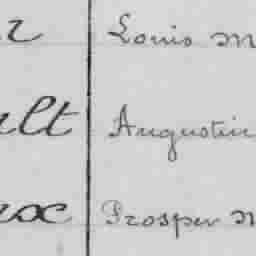 Louis M
ult Augustin
Prosper M